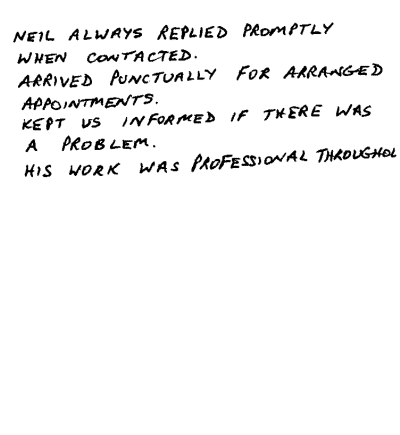 NEIL ALWAYS REPLIED PROMPTLY
WHEN CONTACTED.
ARRIVED PUNCTUALLY FOR ARRANGED
APPOINTMENTS.
KEPT US INFORMED IF THERE WAS
A PROBLEM.
HIS WORK WAS PROFESSIONAL THROUGHOU